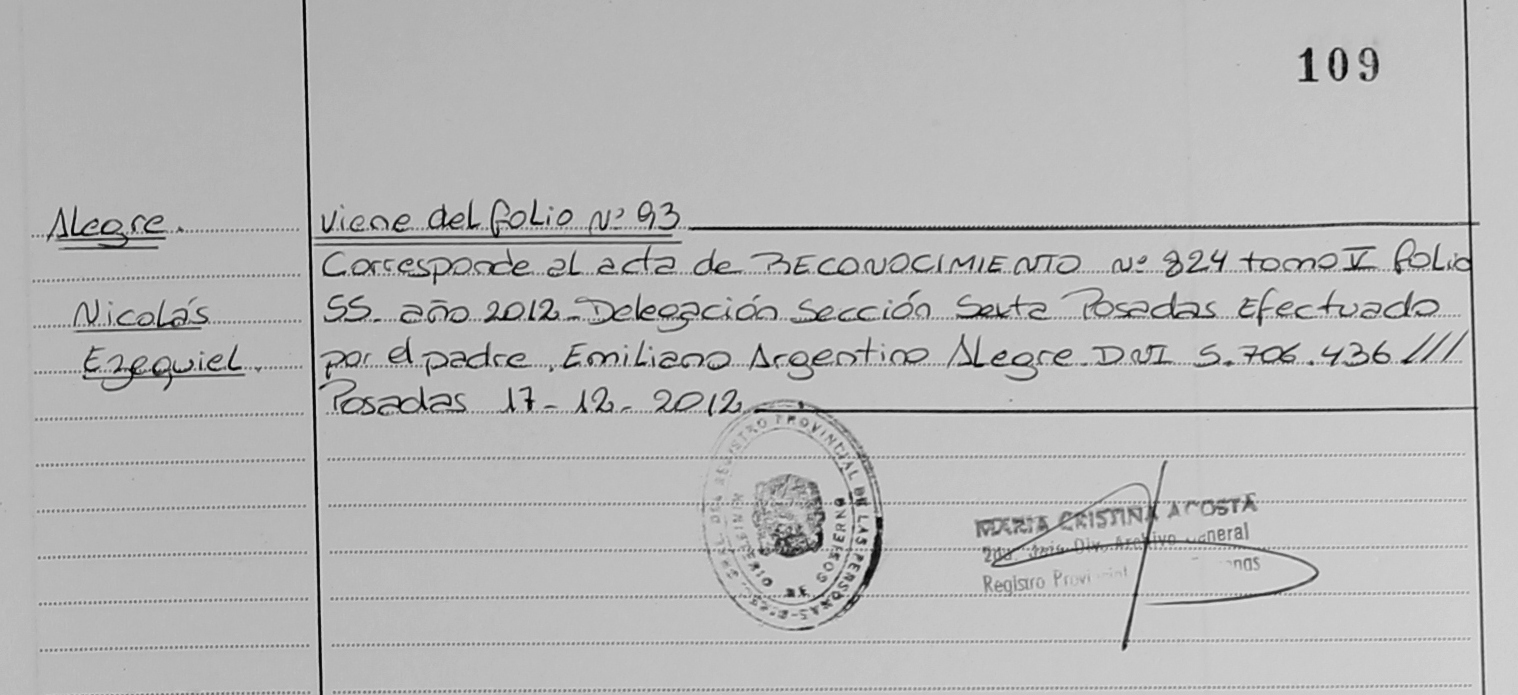 109
Alegre. Viene del folio Nº 93
Corresponde al acta de RECONOCIMIENTO Nº 824 tomo V folio
Nicolás 55. año 2012 - Delegación Sección Sexta Posadas Efectuado
Ezequiel. por el padre, Emiliano Argentino Alegre DNI 5.706.436 ///
Posadas 17-12-2012
REGISTRO PROVINCIAL DE LAS PERSONAS
MINISTERIO DE GOBIERNO
MARIA CRISTINA ACOSTA
2da. Div. Archivo General
Registro